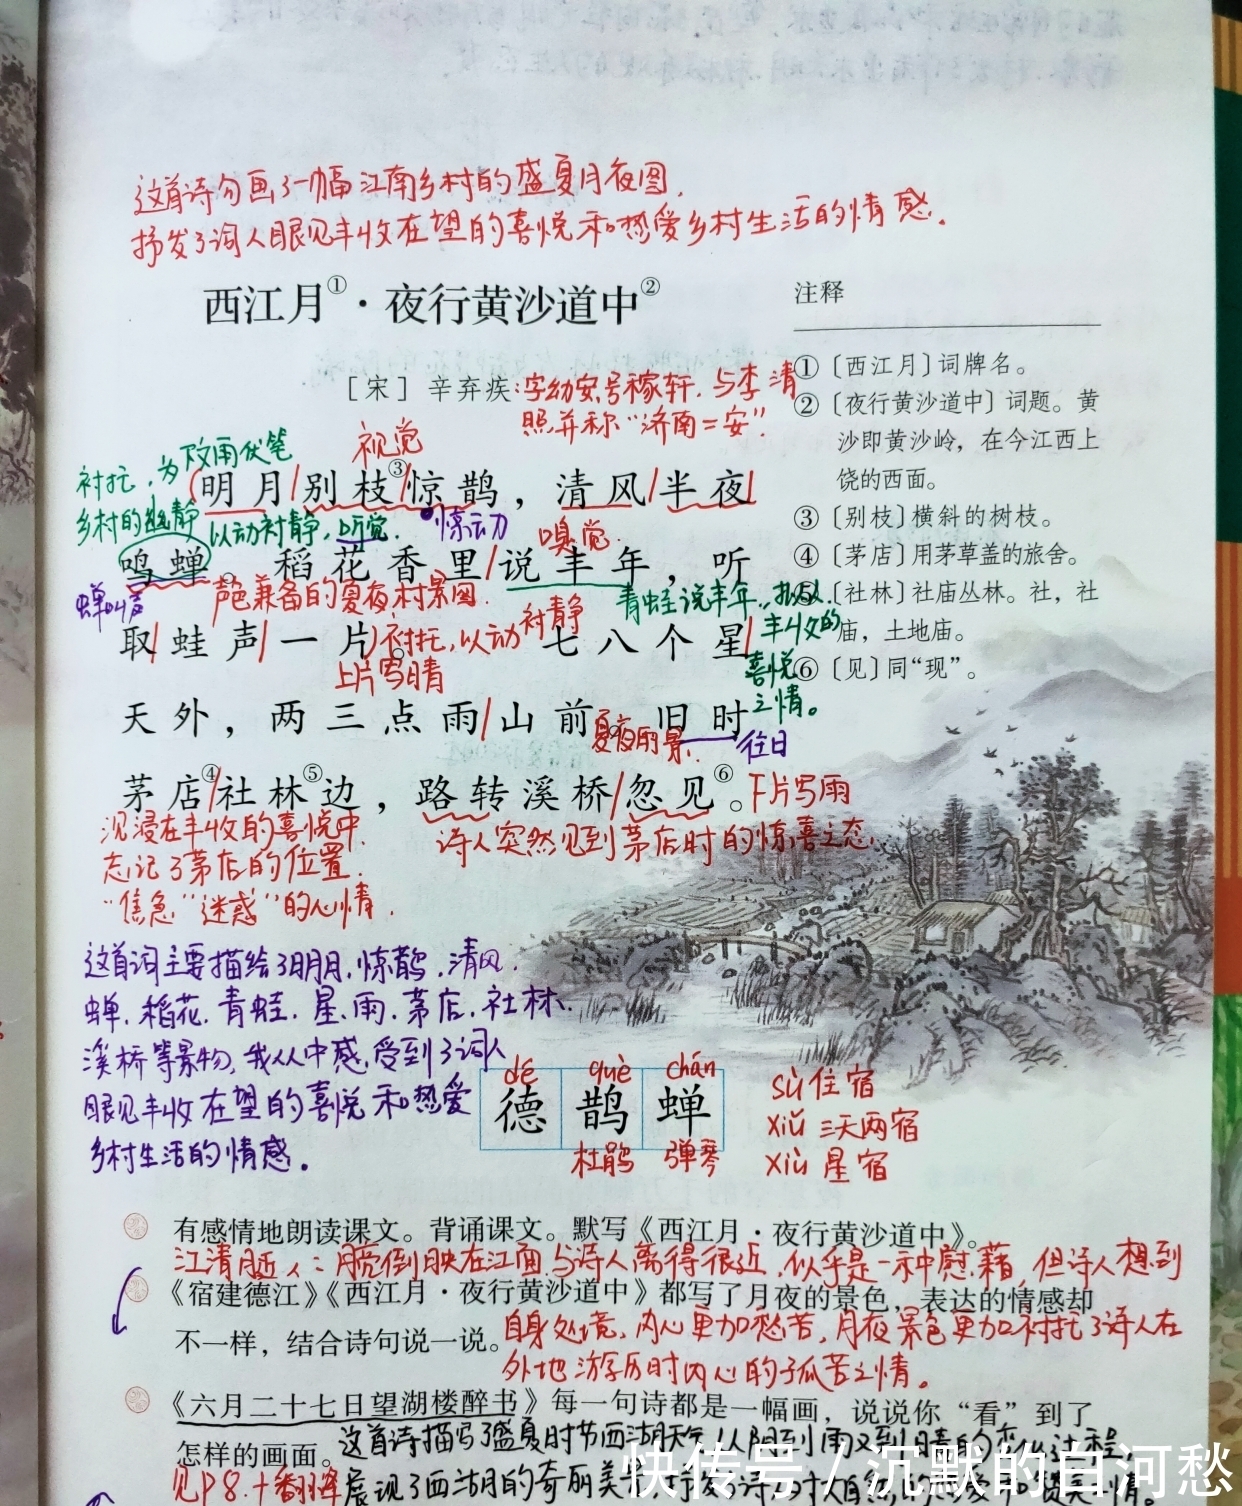 这首诗勾画了一幅江南乡村的盛夏月夜图。
抒发了词人眼见丰收在望的喜悦和热爱乡村生活的情感。
西江月①·夜行黄沙道中②
[宋] 辛弃疾:字幼安,号稼轩.与李清
照并称“济南二安”.
视觉
衬托,为下文雨伏笔
明月/别枝③/惊鹊,清风/半夜/
乡村的幽静 以动衬静,听觉. 惊动 嗅觉.
鸣蝉。稻花香里/说丰年,听
蝉叫声 声色兼备的夏夜村景图. 青蛙说丰年,
取/蛙声/一片。七八个星/
衬托,以动衬静
丰收的
喜悦
之情。
上片写晴
天外,两三点雨/山前。旧时
夏夜雨景. 往日
茅店④/社林⑤边,路转溪桥/忽见⑥。下片写雨
沉浸在丰收的喜悦中.
忘记了茅店的位置.
“焦急”“迷惑”的心情.
诗人突然见到茅店时的惊喜之态.
注释
①〔西江月〕词牌名。
②〔夜行黄沙道中〕词题。黄
沙即黄沙岭,在今江西上
饶的西面。
③〔别枝〕横斜的树枝。
④〔茅店〕用茅草盖的旅舍。
⑤〔社林〕社庙丛林。社,社
庙,土地庙。
⑥〔见〕同“现”。
这首词主要描绘了明月.惊鹊.清风.
蝉.稻花.青蛙.星.雨.茅店.社林.
溪桥等景物,我从中感受到了词人
眼见丰收在望的喜悦和热爱
乡村生活的情感。
dé què chán
德 鹊 蝉
杜鹃 弹琴
sù 住宿
xiǔ 三天两宿
xiù 星宿
有感情地朗读课文。背诵课文。默写《西江月·夜行黄沙道中》。
江清月近人:月亮倒映在江面,与诗人离得很近,似乎是一种慰藉,但诗人想到
《宿建德江》《西江月·夜行黄沙道中》都写了月夜的景色,表达的情感却
不一样,结合诗句说一说。
自身处境,内心更加愁苦,月夜景色更加衬托了诗人在
外地游历时内心的孤苦之情。
《六月二十七日望湖楼醉书》每一句诗都是一幅画,说说你“看”到了
怎样的画面。
这首诗描写了盛夏时节西湖天气从阴到雨又到晴的变化过程,
见P8.十 展现了西湖的奇丽美景,抒发了诗人对大自然的
快传号 / 沉默的白河愁